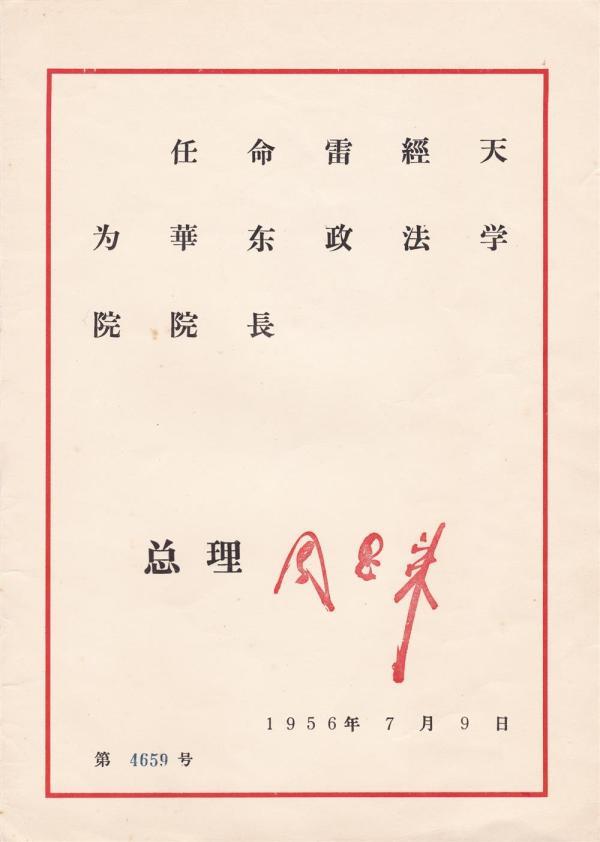 任命雷經天
为華东政法学
院院長
总理 周恩来
1956年7月9日
第 4659 号